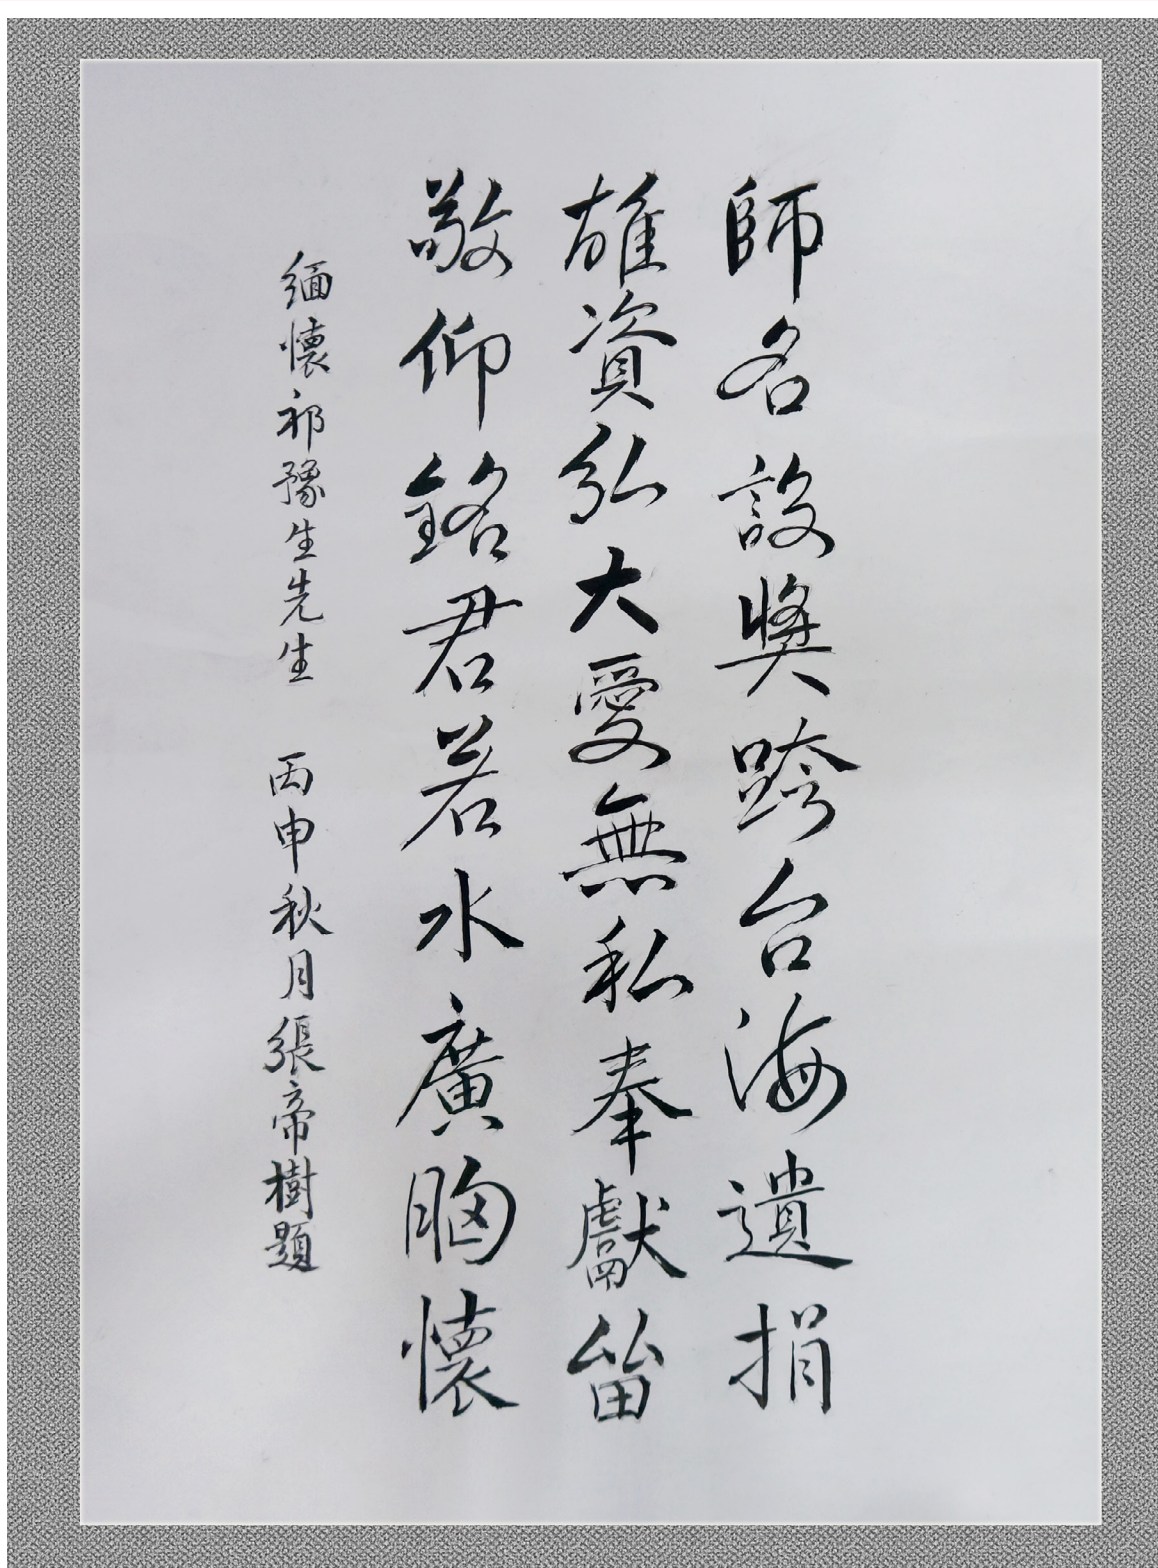 師名設獎跨台海遺捐
雄資弘大愛無私奉獻留
敬仰銘君若水廣胸懷
緬懷祁豫生先生 丙申秋月張帝樹題